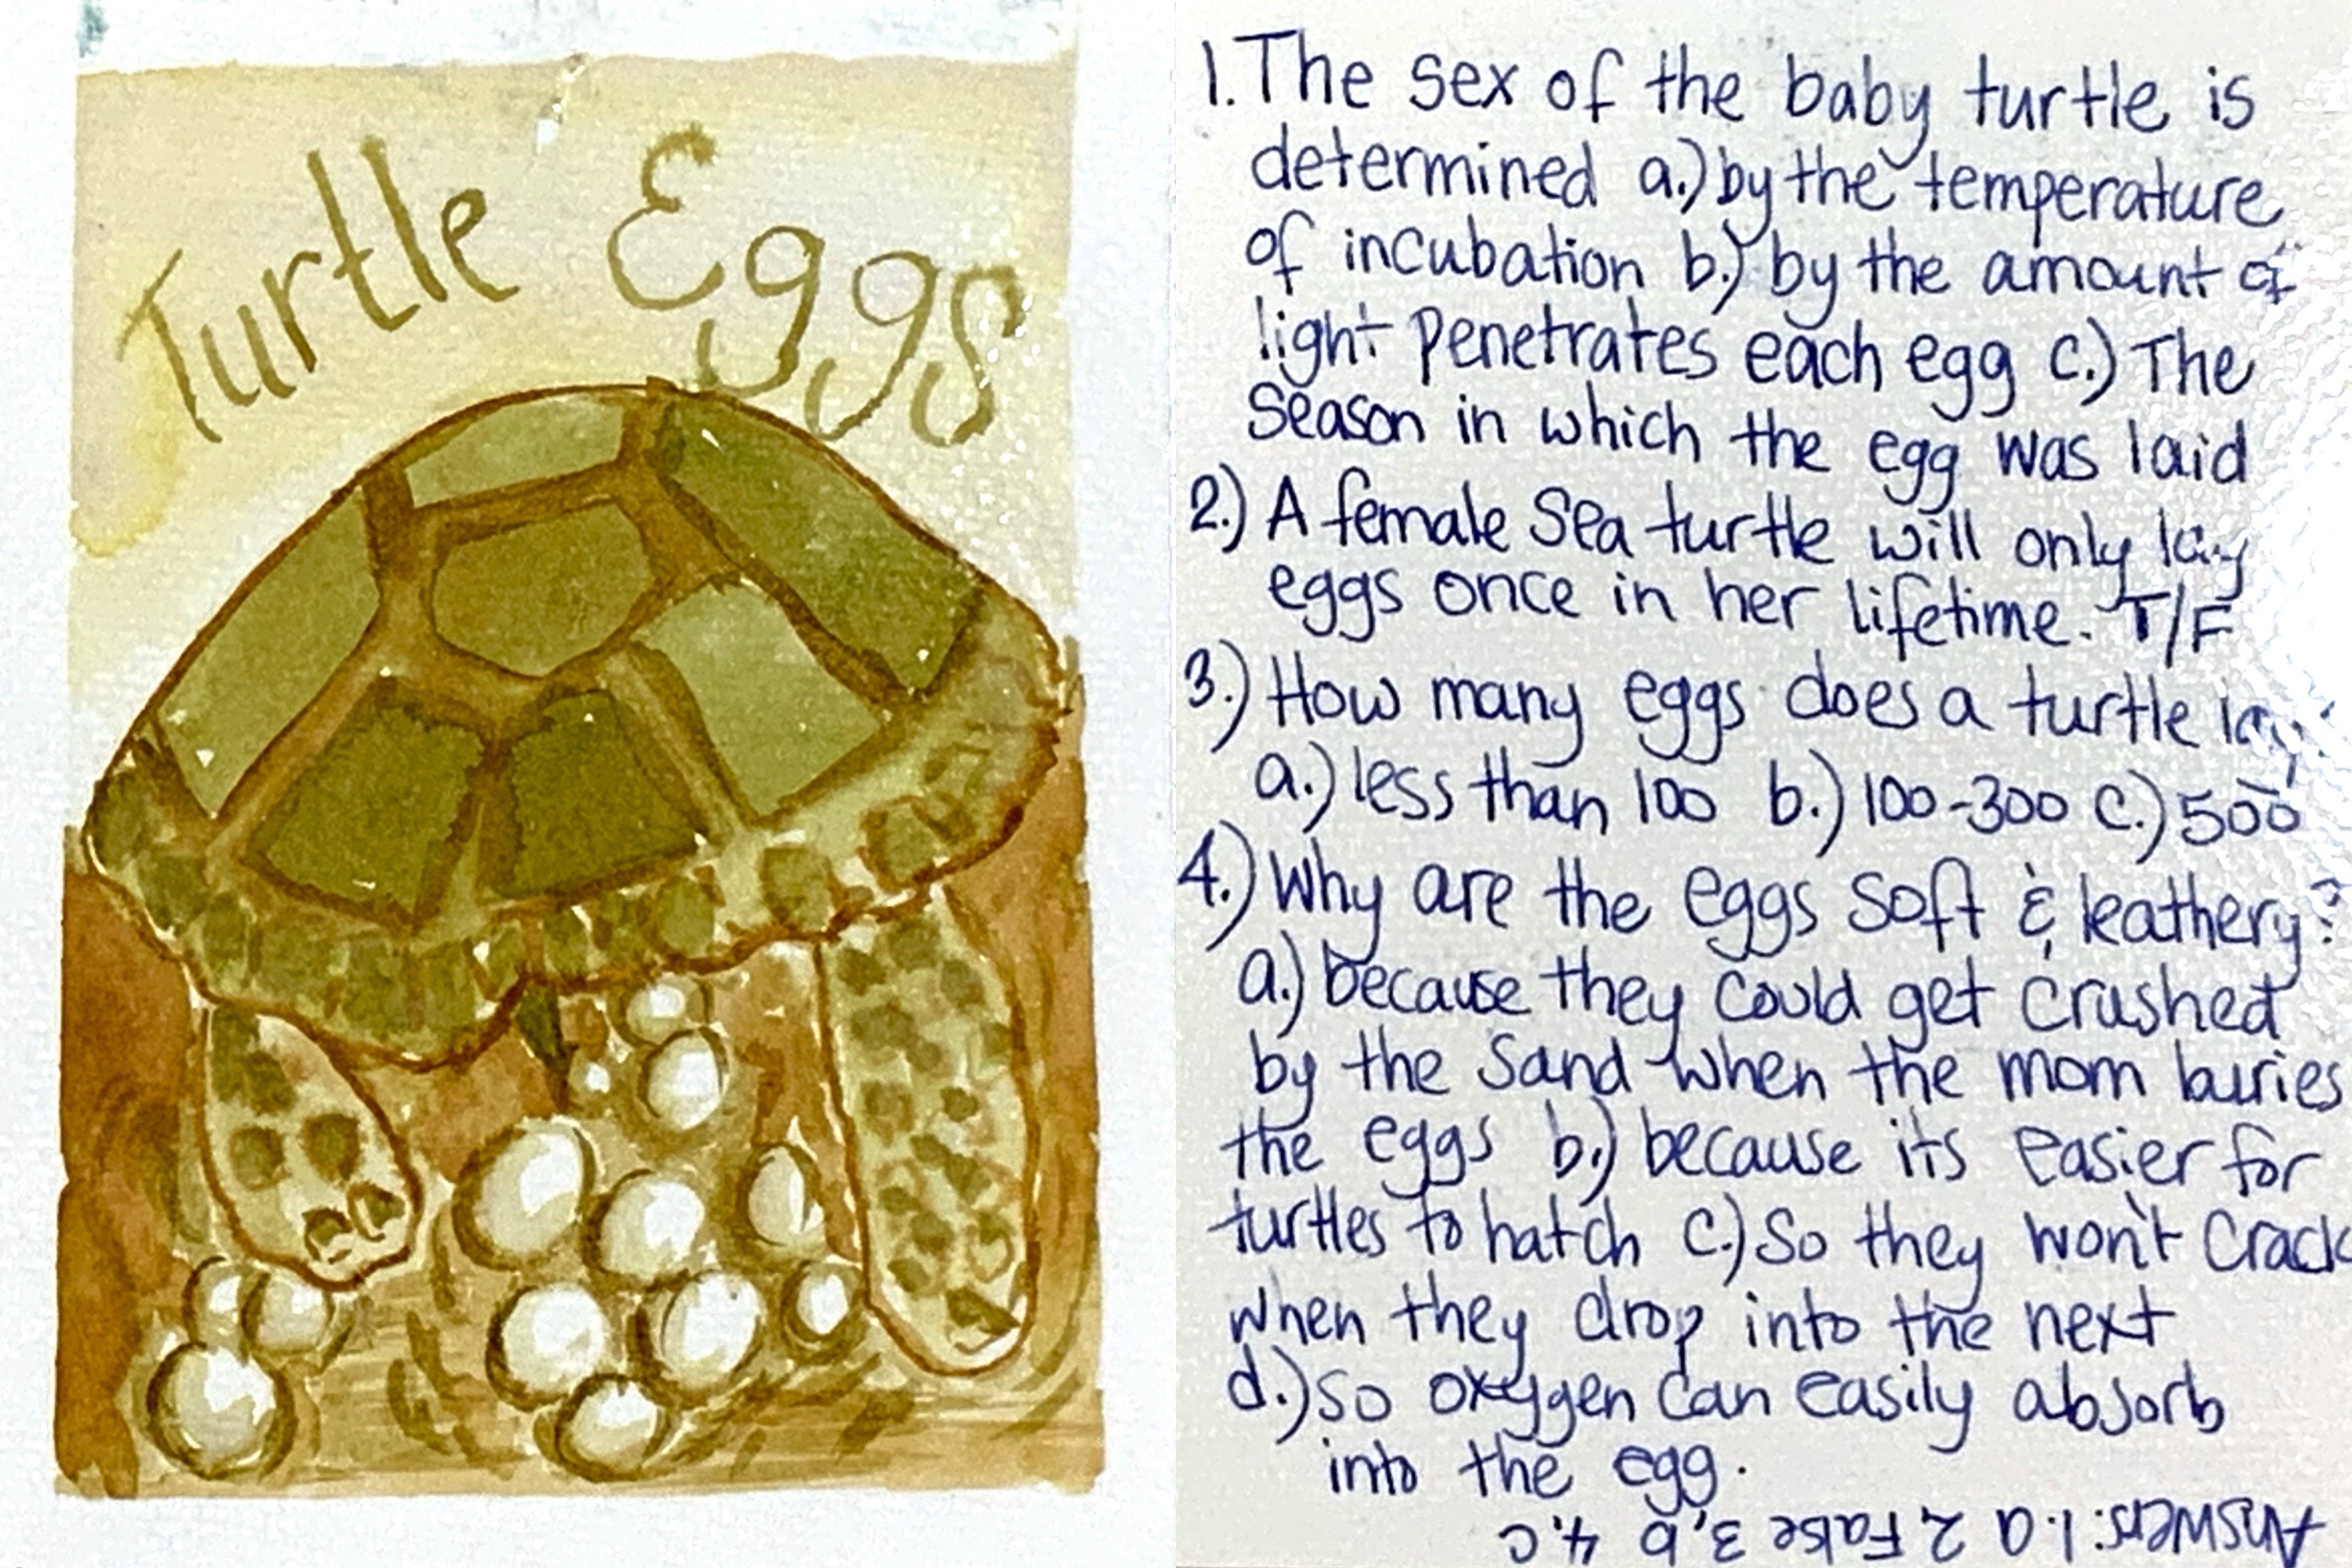 Turtle Eggs
1. The sex of the baby turtle is
determined a.) by the temperature
of incubation b.) by the amount of
light penetrates each egg c.) The
Season in which the egg was laid
2.) A female Sea turtle will only lay
eggs once in her lifetime. T/F
3.) How many eggs does a turtle lay
a.) less than 100 b.) 100-300 c.) 500
4.) Why are the eggs soft & leathery?
a.) because they could get crushed
by the sand when the mom buries
the eggs b.) because its easier for
turtles to hatch c.) So they won't crack
when they drop into the next
d.) so oxygen can easily absorb
into the egg.
Answers: 1. a 2, False 3, b 4, c